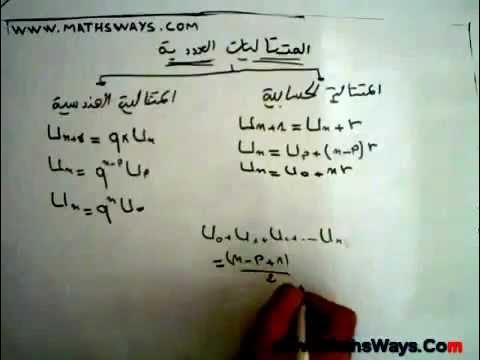 WWW.MATHSWAYS.COM
المتتاليات العددية
المتتالية الحسابية
Uₙ₊₁ = Uₙ + r
Uₙ = Uₚ + (n-p) r
Uₙ = U₀ + n r
المتتالية الهندسية
Uₙ₊₁ = q × Uₙ
Uₙ = qⁿ⁻ᵖ Uₚ
Uₙ = qⁿ U₀
U₀ + U₁ + U₊₁ ... Uₙ
= (n-p+1)/2
MathsWays.Com